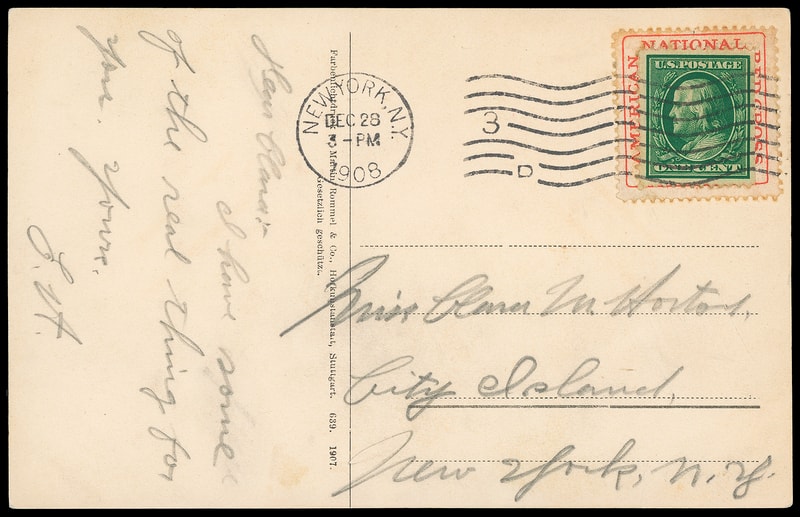 Dear Clara:-
I have some
of the real thing for
you. Yours.
Farbenlichtdruck v. Martin Rommel & Co., Hofkunstanstalt, Stuttgart. 639. 1907.
Gesetzlich geschützt.
NEW YORK, N.Y.
DEC 28
-PM
1908
3
D
AMERICAN NATIONAL RED CROSS
U.S. POSTAGE
ONE CENT
Miss Clara M Horton,
City Island,
New York, N.Y.